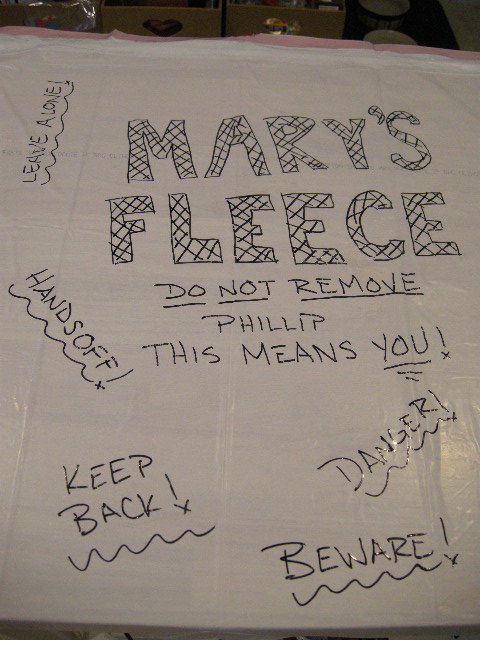 LEAVE ALONE!
MARY'S
FLEECE
DO NOT REMOVE
PHILLIP
THIS MEANS YOU!
HANDS OFF!
DANGER!
KEEP
BACK!
BEWARE!